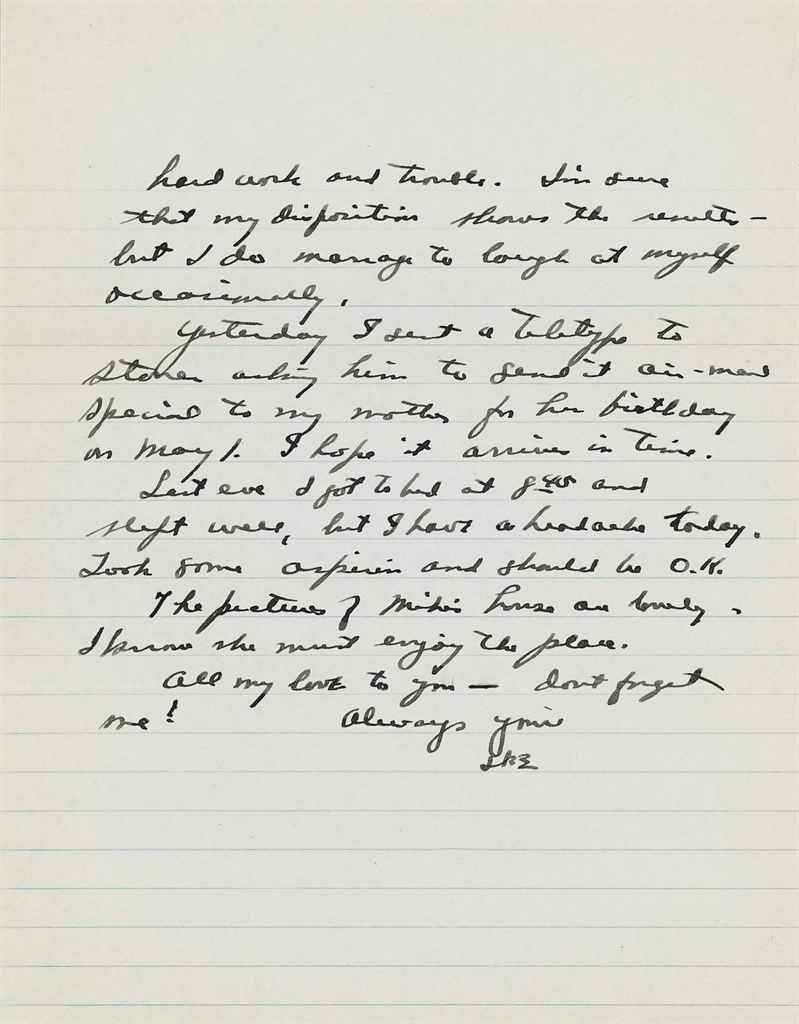 hard work and trouble. I'm sure
that my disposition shows the results -
but I do manage to laugh at myself
occasionally.
Yesterday I sent a teletype to
asking him to send it air-mail
special to my mother for her birthday
on May 1. I hope it arrives in time.
Last eve I got to bed at 8 45 and
slept well, but I have a headache today.
Took some aspirin and should be O.K.
The pictures of Mike's house are lovely -
I know she must enjoy the place.
All my love to you — don't forget
me! Always your
Ike